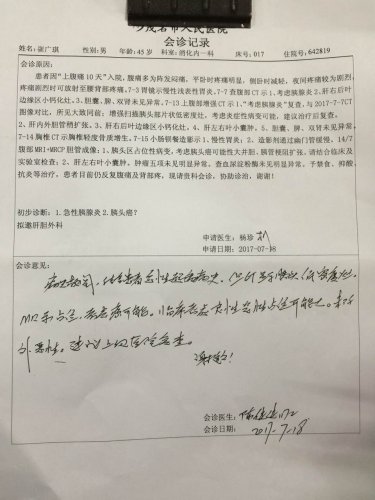 茂名市人民医院
会诊记录
姓名:谢广琪 性别:男 年龄:45岁 科室:消化内一科 床号:017 住院号:642819
会诊原因:
患者因"上腹痛10天"入院,腹痛多为阵发闷痛,平卧时疼痛明显,侧卧时减轻,夜间疼痛较为剧烈,
疼痛剧烈时可放射至腰背部疼痛。7-3胃镜示慢性浅表性胃炎;7-7查腹部CT示 1、考虑胰腺炎 2.肝右后叶
边缘区小钙化灶。3.胆囊、脾、双肾未见异常。7-13上腹部增强CT示1."考虑胰腺炎"复查,与2017-7-7CT
图像对比,所见大致同前;增强扫描胰头部片状低密度灶,考虑炎症性病变可能,建议治疗后复查。
2、肝内外胆管稍扩张。3、肝右后叶边缘区小钙化灶。4、肝左右叶小囊肿。5、胆囊、脾、双肾未见异常。
7-14胸椎CT示胸椎轻度骨质增生。7-15小肠钡餐造影示:1、慢性胃炎;2、造影剂通过幽门管缓慢。14/7
腹部MRI+MRCP胆管成像:1、胰头区占位性病变:考虑胰头癌可能性大并胆、胰管梗阻扩张,请结合临床及
实验室检查;2、肝左右叶小囊肿。肿瘤五项未见明显异常。查血尿淀粉酶未见明显异常。予禁食、抑酸、
抗炎等治疗。患者目前仍反复腹痛及背部疼,现请贵科会诊,协助诊治,谢谢!
初步诊断:1.急性胰腺炎 2.胰头癌?
拟邀肝胆外科
申请医生:杨珍
申请日期:2017-07-18
会诊意见:
MR示占位,考虑癌可能。
建议上级医院会查。
谢谢!
会诊医生:
会诊日期:2017-7-18